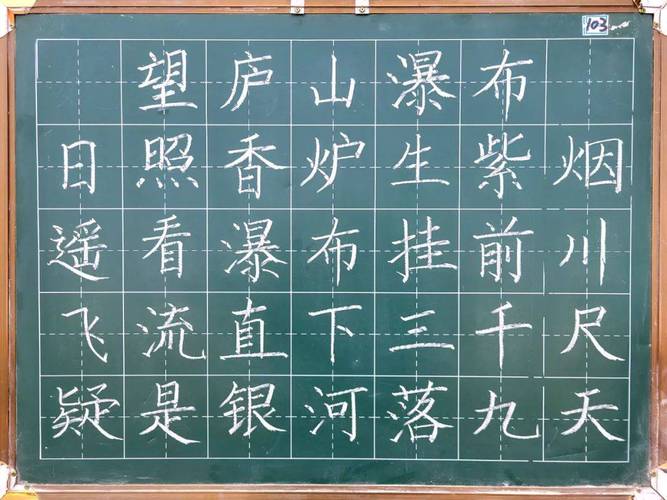 103
望庐山瀑布
日照香炉生紫烟
遥看瀑布挂前川
飞流直下三千尺
疑是银河落九天